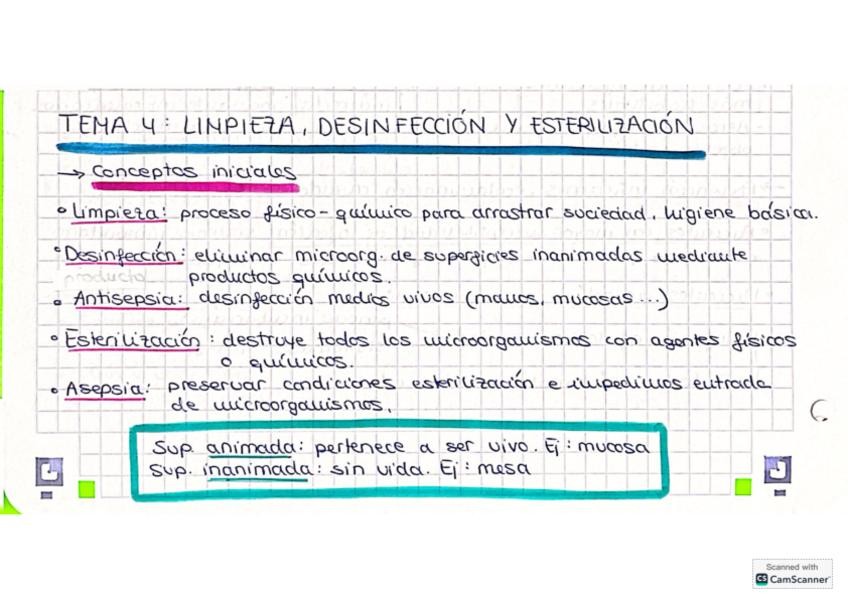 TEMA 4: LIMPIEZA, DESINFECCIÓN Y ESTERILIZACIÓN
→ Conceptos iniciales
• Limpieza: proceso físico-químico para arrastrar suciedad, higiene básica.
• Desinfección: eliminar microorg. de superficies inanimadas mediante
producto productos químicos.
• Antisepsia: desinfección medios vivos (manos, mucosas...)
• Esterilización: destruye todos los microorganismos con agentes físicos
o químicos.
• Asepsia: preservar condiciones esterilización e impedimos entrada
de microorganismos.
Sup. animada: pertenece a ser vivo. Ej: mucosa
Sup. inanimada: sin vida. Ej: mesa
Scanned with
CS CamScanner